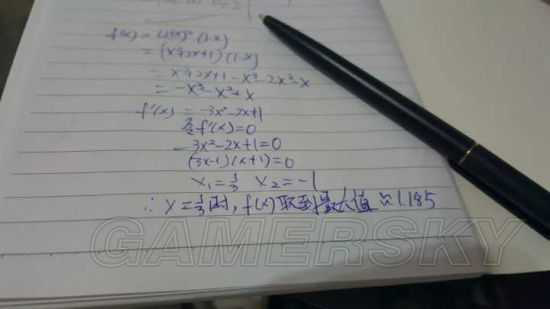 f(x) = (1+x)² (1-x)
= (x²+2x+1) (1-x)
= x²+2x+1 - x³ - 2x² - x
= -x³ - x² + x
f'(x) = -3x² - 2x + 1
令f'(x) = 0
-3x² - 2x + 1 = 0
(3x-1) (x+1) = 0
x₁ = 1/3 x₂ = -1
∴ x = 1/3时, f(x)取到最大值 ≈ 1.185
GAMERSKY